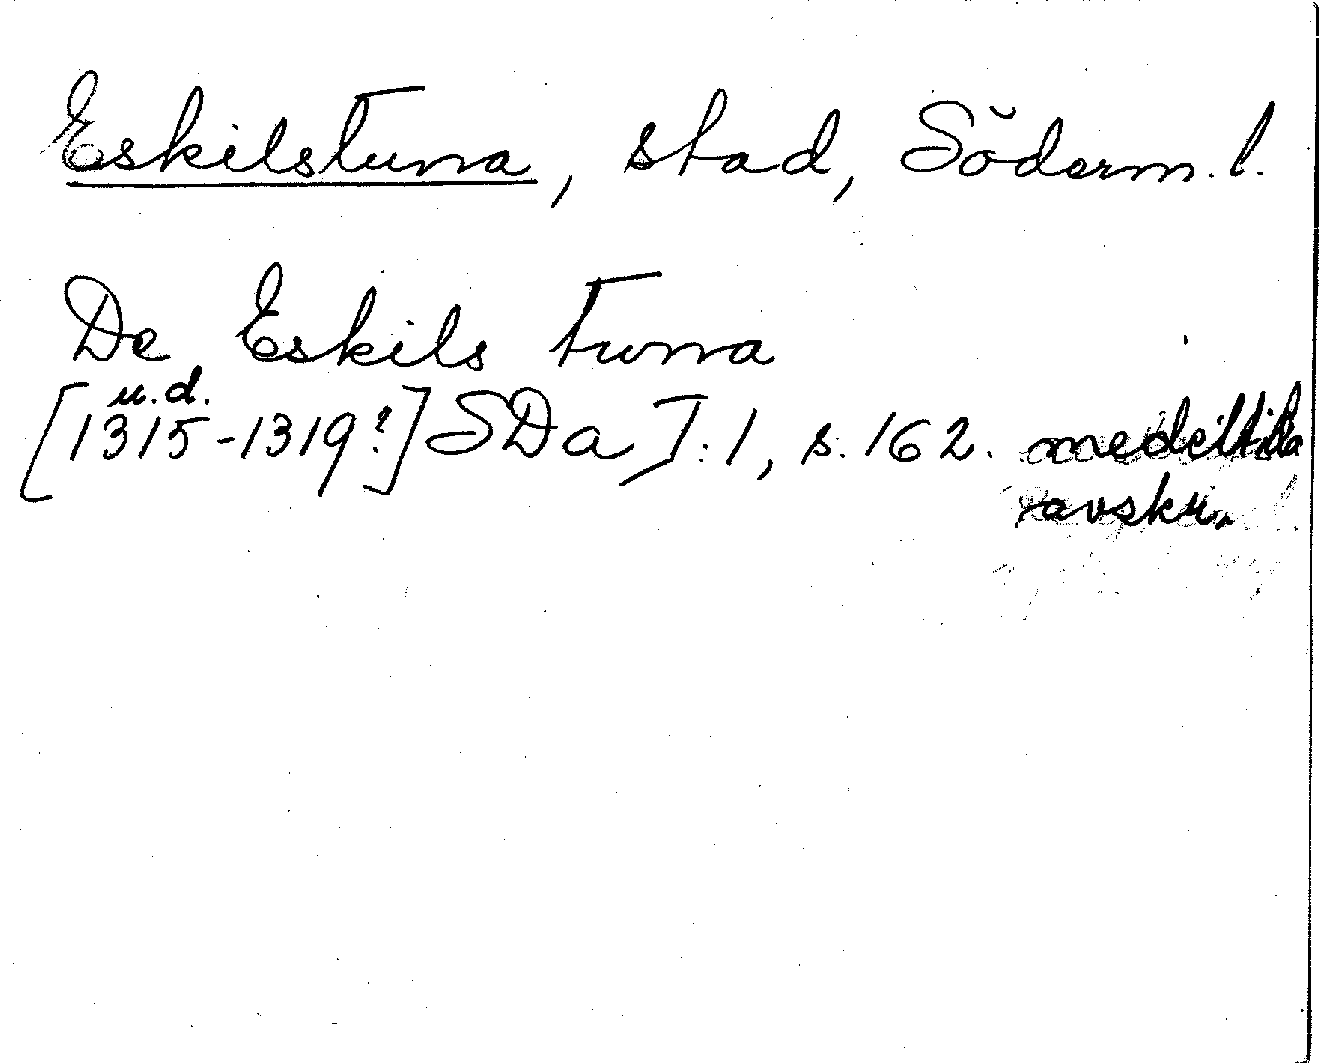 Eskilstuna, stad, Söderm. l.
De Eskils tuna
u.d.
[1315-1319?] SDa I:1, s. 162. medeltida
avskr.